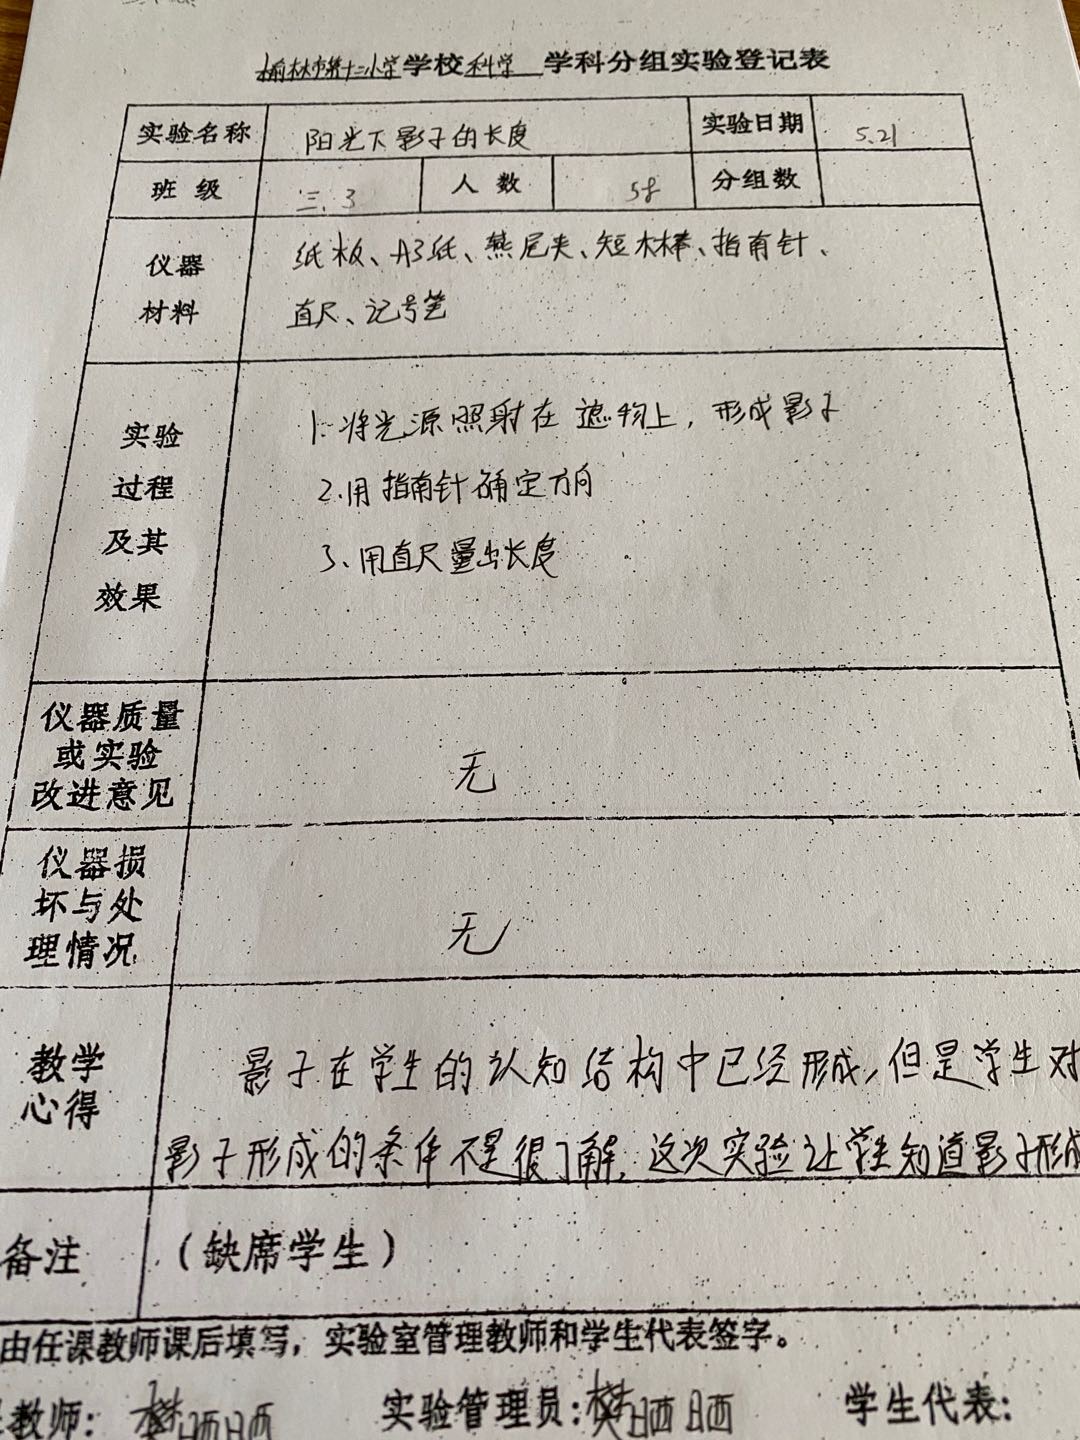 榆林市第十二小学学校科学 学科分组实验登记表
实验名称 阳光下影子的长度 实验日期 5.21
班 级 三.3 人 数 58 分组数
仪器材料 纸板、A3纸、燕尾夹、短木棒、指南针、
直尺、记号笔
实验过程及其效果
1.将光源照射在遮物上，形成影子
2.用指南针确定方向
3、用直尺量出长度
仪器质量或实验改进意见 无
仪器损坏与处理情况 无
教学心得 影子在学生的认知结构中已经形成,但是学生对
影子形成的条件不是很了解,这次实验让学生知道影子形成
备注 （缺席学生）
由任课教师课后填写，实验室管理教师和学生代表签字。
教师: 樊晒晒 实验管理员:樊晒晒 学生代表: